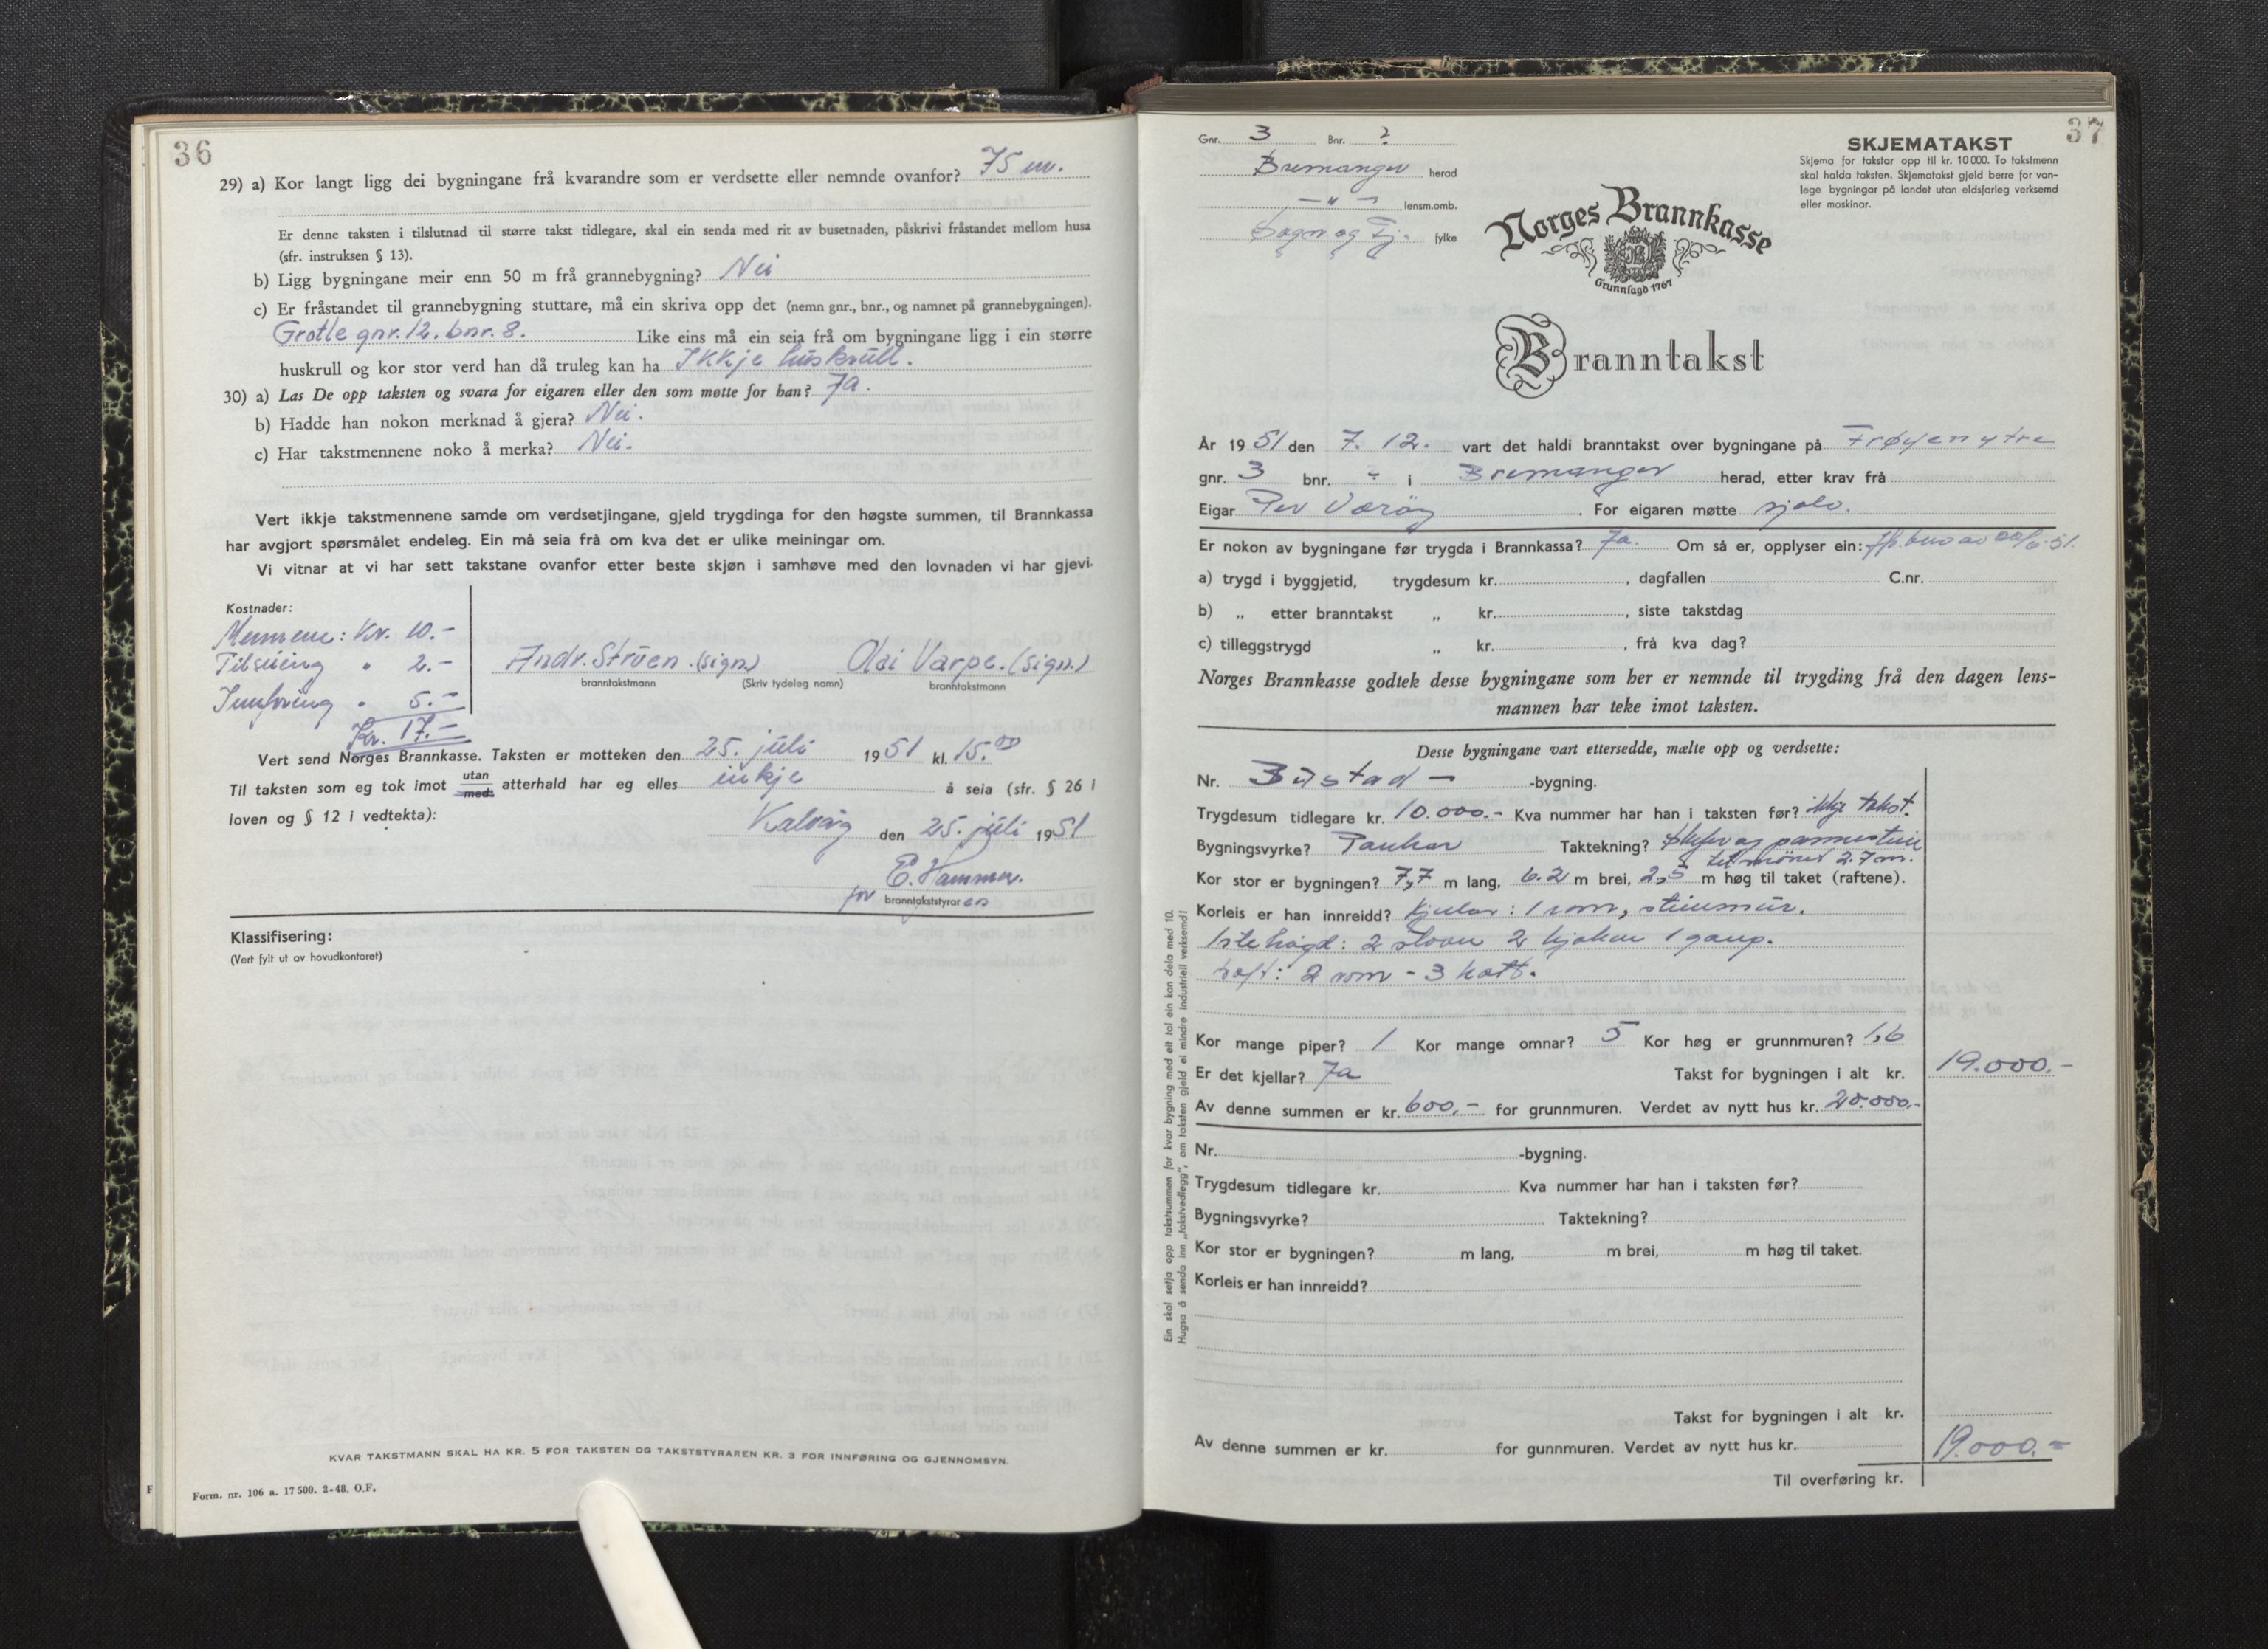 36
29) a) Kor langt ligg dei bygningane frå kvarandre som er verdsette eller nemnde ovanfor? 75 m.
Er denne taksten i tilslutnad til større takst tidlegare, skal ein senda med rit av busetnaden, påskrivi fråstandet mellom husa
(sfr. instruksen § 13).
b) Ligg bygningane meir enn 50 m frå grannebygning? Nei
c) Er fråstandet til grannebygning stuttare, må ein skriva opp det (nemn gnr., bnr., og namnet på grannebygningen).
Grotle gnr. 12. bnr. 8. Like eins må ein seia frå om bygningane ligg i ein større
huskrull og kor stor verd han då truleg kan ha Ikkje huskrull.
30) a) Las De opp taksten og svara for eigaren eller den som møtte for han? Ja.
b) Hadde han nokon merknad å gjera? Nei.
c) Har takstmennene noko å merka? Nei.
Vert ikkje takstmennene samde om verdsetjingane, gjeld trygdinga for den høgste summen, til Brannkassa
har avgjort spørsmålet endeleg. Ein må seia frå om kva det er ulike meiningar om.
Vi vitnar at vi har sett takstane ovanfor etter beste skjøn i samhøve med den lovnaden vi har gjevi.
Kostnader:
Mennene: Kr. 10.-
Tilsiing " 2.-
Innføring " 5.-
Kr. 17.-
Andr. Strøen. (sign.) Olai Varpe. (sign.)
branntakstmann (Skriv tydeleg namn) branntakstmann
Vert send Norges Brannkasse. Taksten er motteken den 25. juli 1951 kl. 15.00
Til taksten som eg tok imot utan med atterhald har eg elles inkje å seia (sfr. § 26 i
loven og § 12 i vedtekta):
Kalvåg den 25. juli 1951
E. Hammer.
for branntakststyraren
Klassifisering:
(Vert fylt ut av hovudkontoret)
KVAR TAKSTMANN SKAL HA KR. 5 FOR TAKSTEN OG TAKSTSTYRAREN KR. 3 FOR INNFØRING OG GJENNOMSYN.
Form. nr. 106 a. 17 500. 2-48. O.F.
37
Gnr. 3 Bnr. 2
Bremanger herad
— " — lensm.omb.
Sogn og Fj. fylke
SKJEMATAKST
Skjema for takstar opp til kr. 10 000. To takstmenn
skal halda taksten. Skjematakst gjeld berre for van-
lege bygningar på landet utan eldsfarleg verksemd
eller maskinar.
Norges Brannkasse
Grunnlagd 1767
Branntakst
År 1951 den 7. 12. vart det haldi branntakst over bygningane på Frøyen ytre
gnr. 3 bnr. i Bremanger herad, etter krav frå
Eigar Per Værøy. For eigaren møtte sjølv.
Er nokon av bygningane før trygda i Brannkassa? Ja. Om så er, opplyser ein:
a) trygd i byggjetid, trygdesum kr. , dagfallen C.nr.
b) „ etter branntakst „ kr. , siste takstdag
c) tilleggstrygd „ kr. , frå kva dag?
Norges Brannkasse godtek desse bygningane som her er nemnde til trygding frå den dagen lens-
mannen har teke imot taksten.
Desse bygningane vart ettersedde, mælte opp og verdsette:
Nr. Bustad — -bygning.
Trygdesum tidlegare kr. 10.000.- Kva nummer har han i taksten før? ikkje takst.
Bygningsvyrke? Plankar Taktekning? Skifer og pannestein
til mønet 2.7 m.
Kor stor er bygningen? 7,7 m lang, 6.2 m brei, 2,5 m høg til taket (raftene).
Korleis er han innreidd? Kjellar: 1 rom, steinmur.
1ste høgd: 2 stover 2 kjøken 1 gang.
Loft: 2 rom - 3 kott.
Kor mange piper? 1 Kor mange omnar? 5 Kor høg er grunnmuren? 1,6
Er det kjellar? Ja Takst for bygningen i alt kr. 19.000.-
Av denne summen er kr. 600,- for grunnmuren. Verdet av nytt hus kr. 20.000.-
Nr. -bygning.
Trygdesum tidlegare kr. Kva nummer har han i taksten før?
Bygningsvyrke? Taktekning?
Kor stor er bygningen? m lang, m brei, m høg til taket.
Korleis er han innreidd?
Takst for bygningen i alt kr.
Av denne summen er kr. for gunnmuren. Verdet av nytt hus kr.
19.000.-
Til overføring kr.
Ein skal setja opp takstsummen for kvar bygning med eit tal ein kan dela med 10.
Hugsa å senda inn „takstvedlegg”, om taksten gjeld ei mindre industriell verksemd!